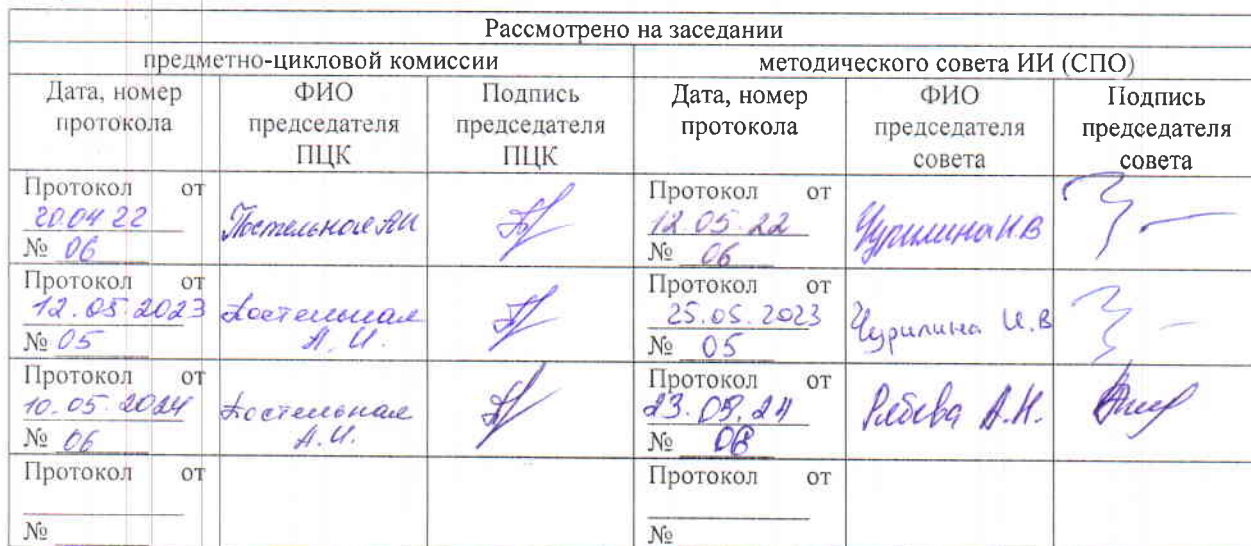 Рассмотрено на заседании
предметно-цикловой комиссии
методического совета ИИ (СПО)
Дата, номер
протокола
ФИО
председателя
ПЦК
Подпись
председателя
ПЦК
Дата, номер
протокола
ФИО
председателя
совета
Подпись
председателя
совета
Протокол от
20.04 22
№ 06
Постельная АИ
Протокол от
12.05.22
№ 06
Чурилина И В
Протокол от
12.05.2023
№ 05
Постельная
А. И.
Протокол от
25.05.2023
№ 05
Чурилина И.В
Протокол от
10.05.2024
№ 06
Постельная
А. И.
Протокол от
23.05.24
№ 06
А.Н.
Протокол от
№
Протокол от
№